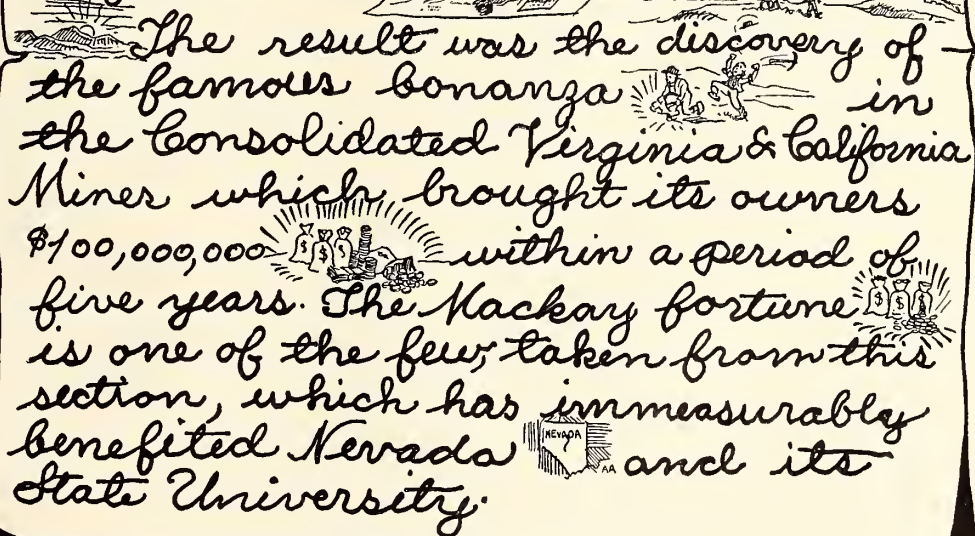 The result was the discovery of
the famous bonanza in
the Consolidated Virginia & California
Mines which brought its owners
$100,000,000 within a period of
five years. The Mackay fortune
is one of the few, taken from this
section, which has immeasurably
benefited Nevada NEVADA AA and its
State University.